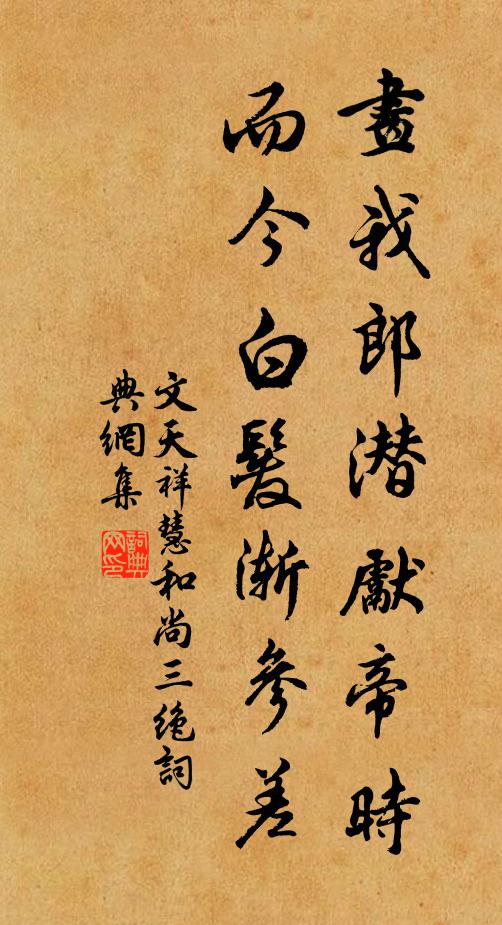 畫我郎潛獻帝時
而今白髮漸參差
文天祥慧和尚三絶詞
典網集
詞典網印